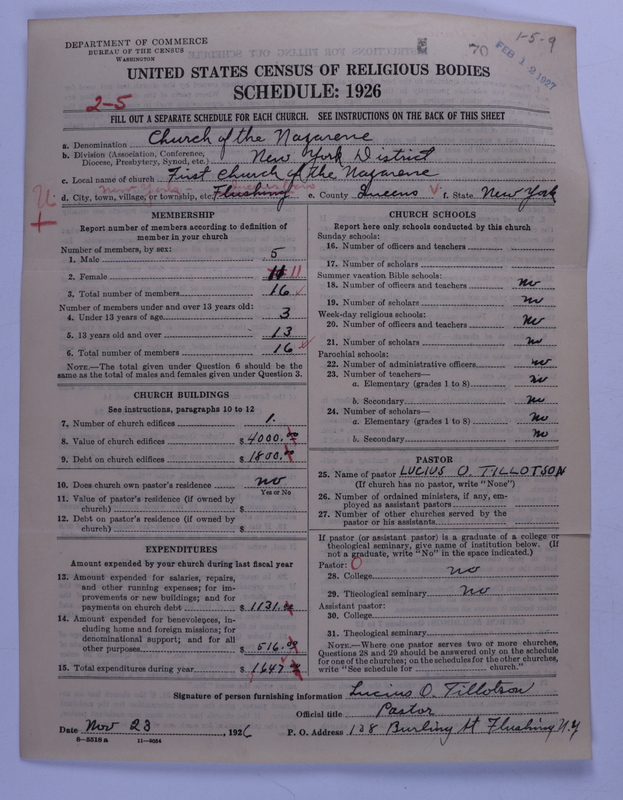 DEPARTMENT OF COMMERCE
BUREAU OF THE CENSUS
WASHINGTON
70
FEB 19 1927
1-5-9
UNITED STATES CENSUS OF RELIGIOUS BODIES
SCHEDULE: 1926
2-5
FILL OUT A SEPARATE SCHEDULE FOR EACH CHURCH. SEE INSTRUCTIONS ON THE BACK OF THIS SHEET
a. Denomination Church of the Nazarene
b. Division (Association, Conference, Diocese, Presbytery, Synod, etc.) New York District
c. Local name of church First Church of the Nazarene
New York
d. City, town, village, or township, etc. Flushing e. County Queens f. State New York
MEMBERSHIP
Report number of members according to definition of
member in your church
Number of members, by sex:
1. Male 5
2. Female 11 11
3. Total number of members 16
Number of members under and over 13 years old:
4. Under 13 years of age 3
5. 13 years old and over 13
6. Total number of members 16
NOTE.—The total given under Question 6 should be
same as the total of males and females given under Question 3.
CHURCH BUILDINGS
See instructions, paragraphs 10 to 12
7. Number of church edifices 1.
8. Value of church edifices $ 4000.00
9. Debt on church edifices $ 1800.00
10. Does church own pastor's residence no
Yes or No
11. Value of pastor's residence (if owned by
church) $
12. Debt on pastor's residence (if owned by
church) $
EXPENDITURES
Amount expended by your church during last fiscal year
13. Amount expended for salaries, repairs,
and other running expenses; for im-
provements or new buildings; and for
payments on church debt $ 1131.
14. Amount expended for benevolences, in-
cluding home and foreign missions; for
denominational support; and for all
other purposes $ 516.00
15. Total expenditures during year $ 1647
CHURCH SCHOOLS
Report here only schools conducted by this church
Sunday schools:
16. Number of officers and teachers
17. Number of scholars
Summer vacation Bible schools:
18. Number of officers and teachers no
19. Number of scholars no
Week-day religious schools:
20. Number of officers and teachers no
21. Number of scholars no
Parochial schools:
22. Number of administrative officers no
23. Number of teachers—
a. Elementary (grades 1 to 8) no
b. Secondary no
24. Number of scholars—
a. Elementary (grades 1 to 8) no
b. Secondary no
PASTOR
25. Name of pastor LUCIUS O. TILLOTSON
(If church has no pastor, write "None")
26. Number of ordained ministers, if any, em-
ployed as assistant pastors
27. Number of other churches served by the
pastor or his assistants
If pastor (or assistant pastor) is a graduate of a college or
theological seminary, give name of institution below. (If
not a graduate, write "No" in the space indicated.)
Pastor: O
28. College no
29. Theological seminary no
Assistant pastor:
30. College
31. Theological seminary
NOTE.—Where one pastor serves two or more churches,
Questions 28 and 29 should be answered only on the schedule
for one of the churches; on the schedules for the other churches,
write "See schedule for church."
Signature of person furnishing information Lucius O. Tillotson
Official title Pastor
Date Nov 23, 1926 P. O. Address 128 Burling St Flushing N.Y
8-5518 a 11-9024